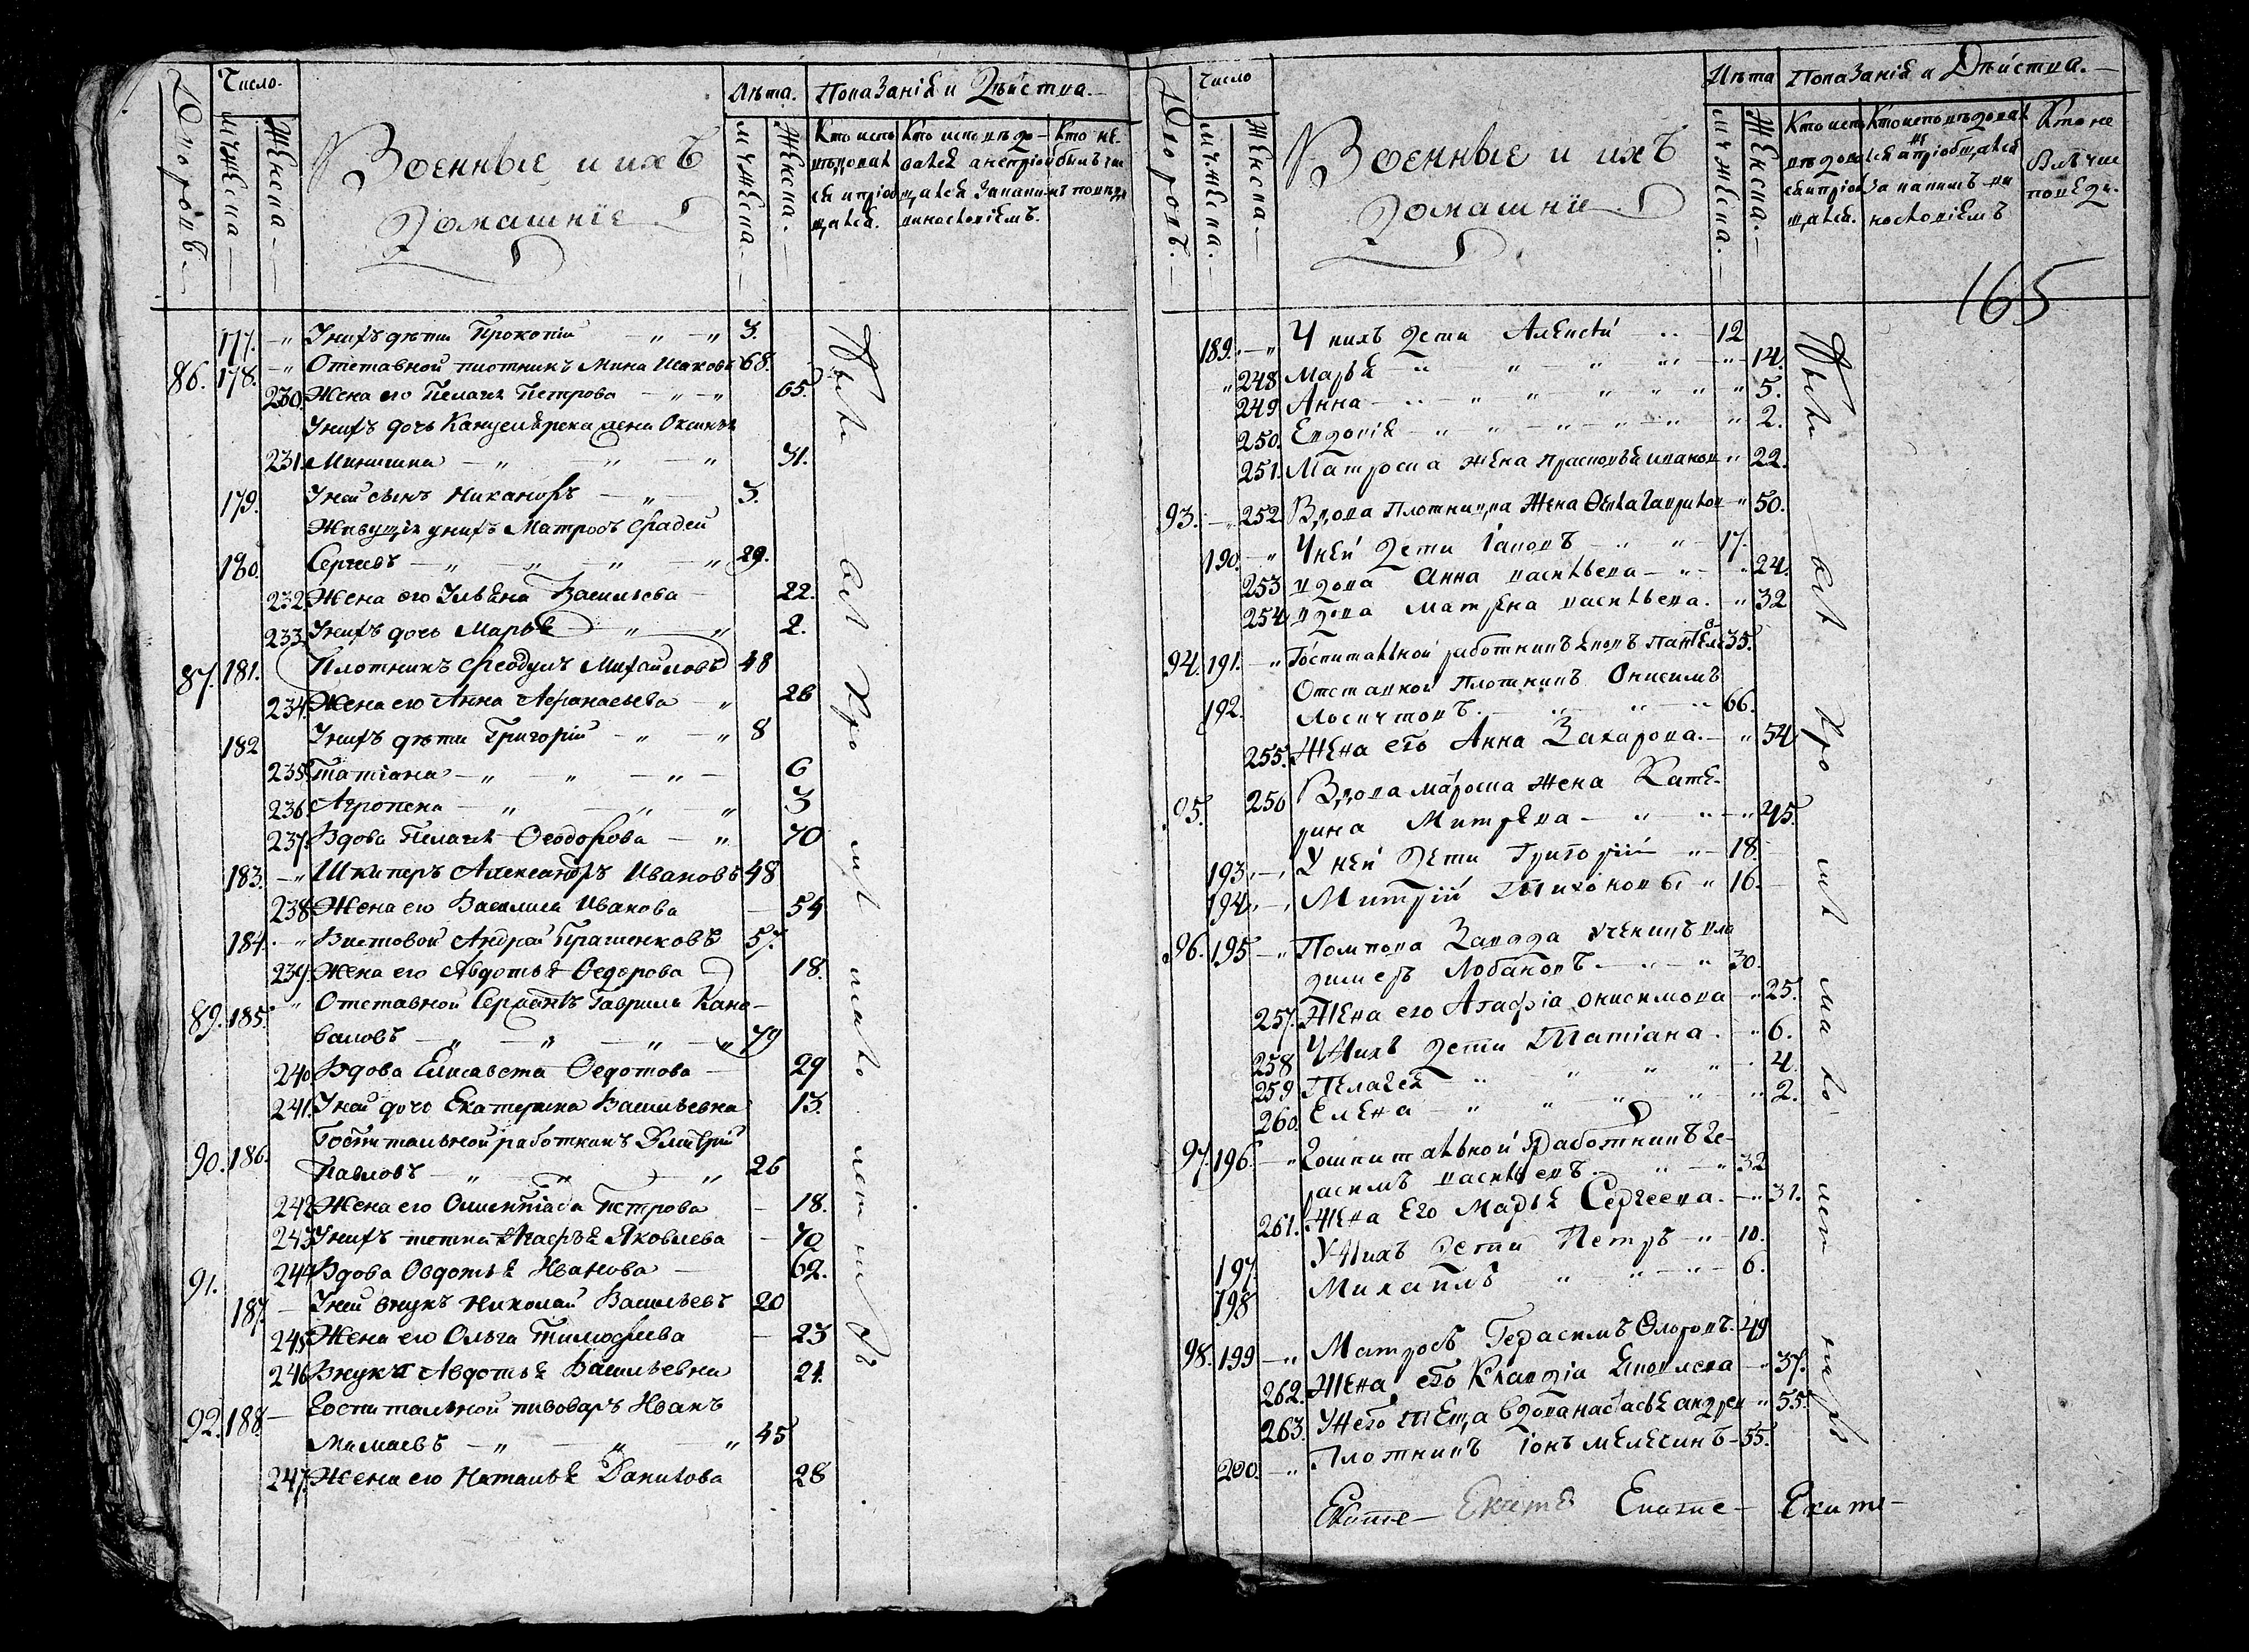 Число.
Лѣта.
Показанія и Дѣйства.
Дворовъ.
мужеска
Женска
Военныя и ихъ
Домашнїе
мужеска.
Женска.
Кто испо
вѣдовал
ся и пріоб
щался.
Кто исповѣдо-
вался а непріоб
щался за каким
винословіемъ.
Кто не
былъ
177. " У нихъ дѣти Прокопій " " 3.
86. 178. " Отставной плотникъ Мина Исаковъ 68.
230. Жена его Пелагія Петрова " " 65.
У нихъ дочь Канцелярска жена Оксинья
231. Минишна " " " 31.
179. У ней сынъ Никаноръ " 3.
Живущія у нихъ Матросъ Фадей
180. Сергиевъ " " " " 29.
232. Жена его Ульяна Васильева 22.
233. У нихъ дочь Марья " " 2.
87. 181. Плотникъ Феодулъ Михайловъ 48
234. Жена его Анна Афанасьева " 28
182 У нихъ дѣти Григорій " " 8
235. Татіана " " " 6
236 Агропена " " " 3
237. Вдова Пелагія Феодорова " 70
183. " Шкиперъ Александръ Ивановъ 48
238 Жена его Василиса Иванова 54
184. " Вистовой Андрей Прашенковъ 57.
239. Жена его Авдотья Федорова 18.
89. 185. " Отставной Сержантъ Гаврила Кано-
валовъ " " " " 79
240 Вдова Елисавета Федотова 29
241. У ней дочь Екатерина Васильевна 13.
90. 186. Гостпитальной работникъ Дмитрій
Павловъ " " " 26
242 Жена его Олимпіада Петрова 18.
243 У нихъ тетка Агафья Яковлева 70
91. 244 Вдова Овдотья Иванова 62.
187. У ней внукъ Николай Васильевъ 20
245 Жена его Ольга Тимофеева 23
246 Внука Авдотья Васильевна 21.
92. 188 Госпитальной пивоваръ Иванъ
Мамаевъ " " " 45
247. Жена его Наталья Данилова 28
Число
Лѣта
Показанія и Дѣйства.
Дворовъ.
мужеска.
Женска.
Военныя и ихъ
Домашнїе.
мужеска.
Женска.
Кто испо
вѣдовался
и пріоб
щался.
Кто исповѣдовал
ся а не пріобщался
за какимъ ви
нословіемъ
Кто не
былъ
165
189. " У нихъ дети Алексѣй 12
" 248. Марья " " " " 14.
249 Анна " " " " " 5.
250. Евдокія " " " " " 2.
251. Матроска жена Прасковья Иванов " 22.
93. " 252. Вдова Плотницка Жена Фекла Гаврилов " 50.
190. " У ней дети Іаковъ " " 17.
253 вдова Анна Васильева " " 24.
254 вдова Матрена Васильева. " 32
94. 191. " Госпитальной работникъ Яковъ Пантѣлѣ 35.
Отставной Плотникъ Онисимъ
192. " " " 66.
255. Жена его Анна Захарова. " 54
95. 256 Вдова матроска жена Кате-
рина Митрева " " " 45.
193. " У ней дети Григорій " 18.
194. " Митрій Тихоновы " 16.
96. 195 " Помпова Завода ученикъ Вла
димеръ Лобановъ " " 30.
257. Жена его Агафіа Онисимова " 25.
258 У нихъ дети Татіана. " 6.
259 Пелагея " " " " 4.
260. Елена " " " " " 2.
97. 196. " Гошпитальной работникъ Ге-
расимъ Васильевъ " " 32
261. Жена Его Марья Сергеева. " 31.
197. У нихъ дети Петръ " 10.
198 Михаилъ " " " 6.
98. 199 " Матросъ Герасимъ Федоровъ. 49
262. Жена его Клавдіа Яковлева " 37.
263. У него теща вдова Настасья Андрев " 55.
200. " Плотникъ Іонъ Мелехинъ 55.
Екате— Екате Екате— Екате—